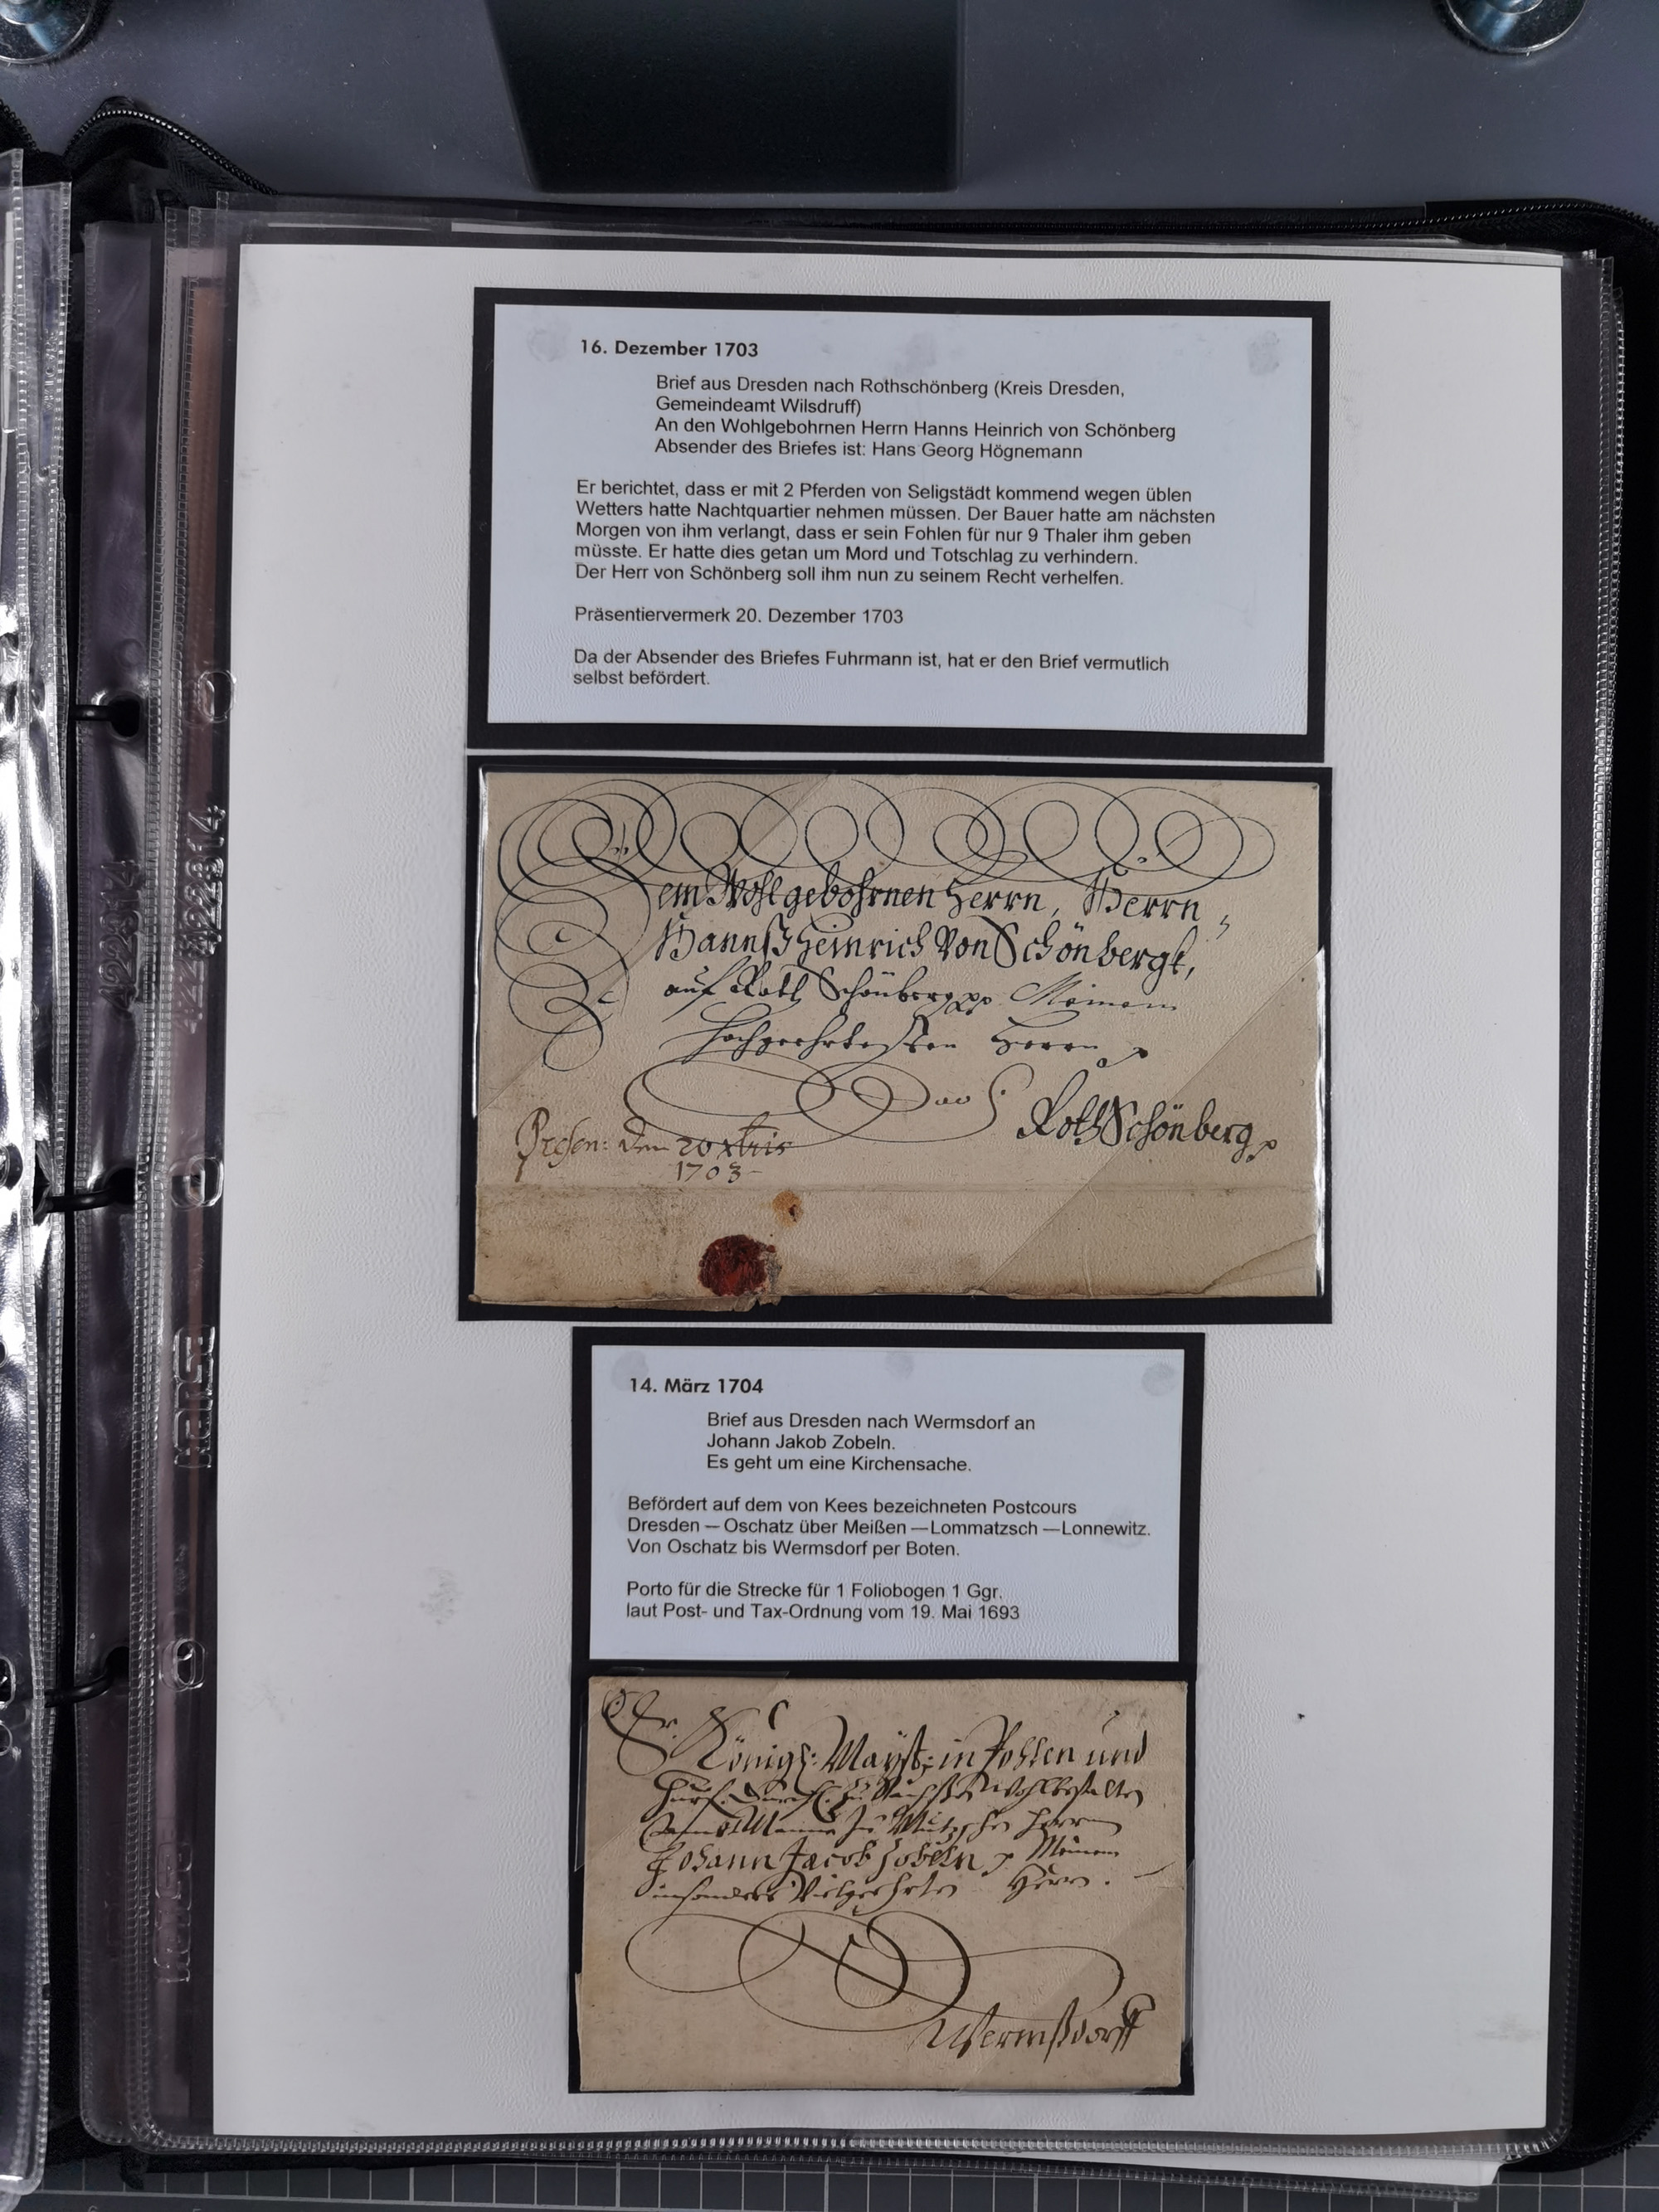 16. Dezember 1703
Brief aus Dresden nach Rothschönberg (Kreis Dresden,
Gemeindeamt Wilsdruff)
An den Wohlgebohrnen Herrn Hanns Heinrich von Schönberg
Absender des Briefes ist: Hans Georg Högnemann
Er berichtet, dass er mit 2 Pferden von Seligstädt kommend wegen üblen
Wetters hatte Nachtquartier nehmen müssen. Der Bauer hatte am nächsten
Morgen von ihm verlangt, dass er sein Fohlen für nur 9 Thaler ihm geben
müsste. Er hatte dies getan um Mord und Totschlag zu verhindern.
Der Herr von Schönberg soll ihm nun zu seinem Recht verhelfen.
Präsentiervermerk 20. Dezember 1703
Da der Absender des Briefes Fuhrmann ist, hat er den Brief vermutlich
selbst befördert.
Dem Wohlgebohrnen Herrn, Herrn
Hannß Heinrich Von Schönbergk,
auf Roth Schönberg Meinem
Hochgeehrtesten Herrn
Roth Schönberg
Presen: den 20 xbris
1703
14. März 1704
Brief aus Dresden nach Wermsdorf an
Johann Jakob Zobeln.
Es geht um eine Kirchensache.
Befördert auf dem von Kees bezeichneten Postcours
Dresden — Oschatz über Meißen — Lommatzsch — Lonnewitz.
Von Oschatz bis Wermsdorf per Boten.
Porto für die Strecke für 1 Foliobogen 1 Ggr.
laut Post- und Tax-Ordnung vom 19. Mai 1693
Sr. Königl: Mayst: in Pohlen und
Churf. Durchl. zu Sachßen Wohlbestalten
zu Mutzschen Herrn
Johann Jacob Zobeln Meinem
insonders Vielgeehrten Herrn.
Wermßdorff
422314
422314
Hansa